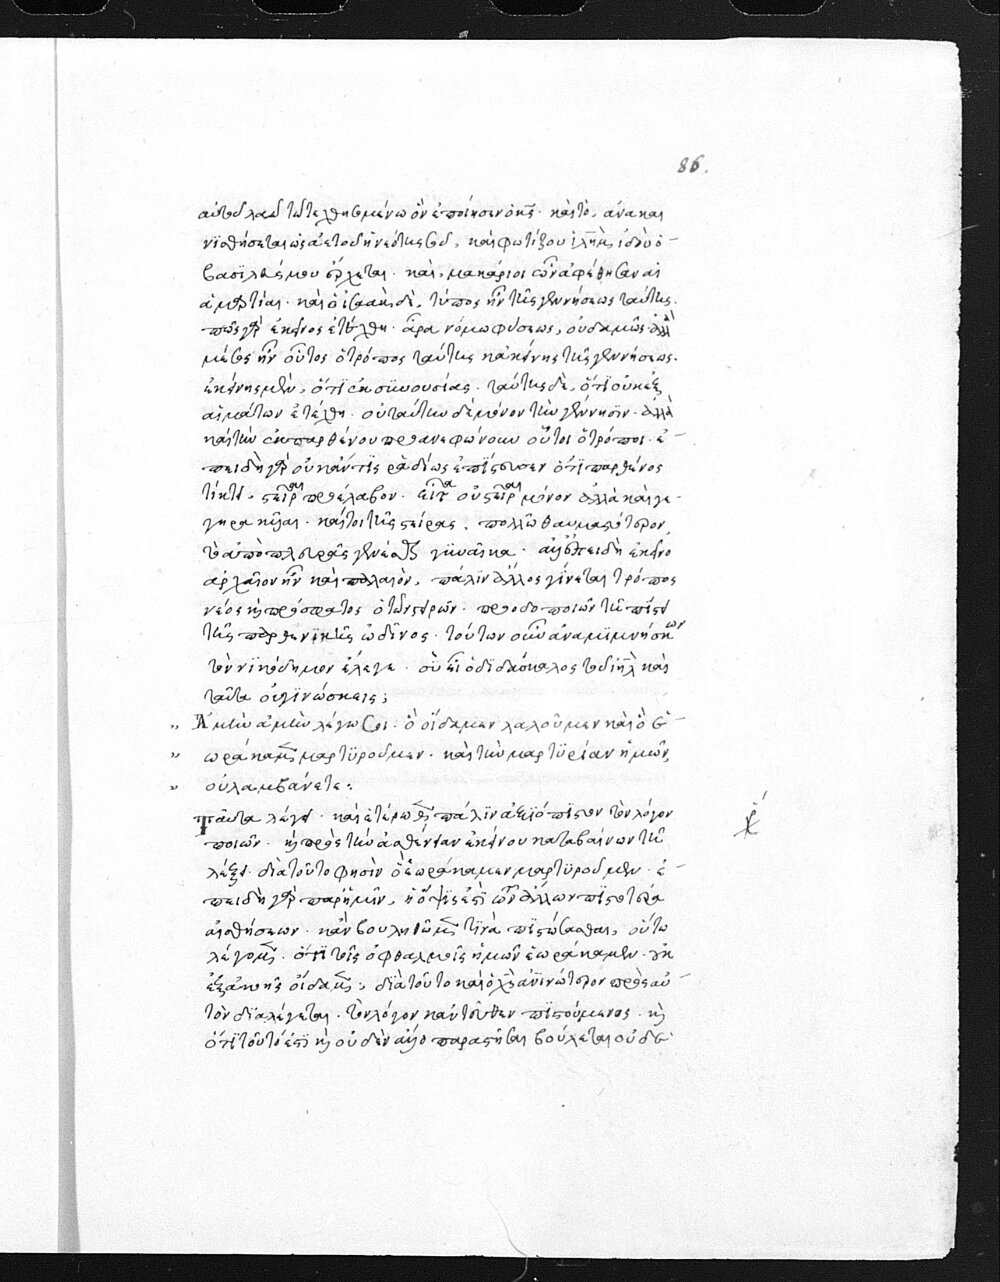 86.
αὐτοῦ λαῷ τῷ τεχθησομένῳ ὃν ἐποίησεν ὁ κ̅ς̅. καὶ τὸ, ἀνακαι
νισθήσεται ὡς ἀετοῦ ἡ νεότης σου, καὶ φωτίζου ἱλὴμ, ἰδοὺ ὁ
βασιλεύς σου ἔρχεται. καὶ, μακάριοι ὧν ἀφέθησαν αἱ
ἀμαρτίαι. καὶ ὁ ἰσαὰκ δὲ, τύπος ἦν τῆς γεννήσεως ταύτης.
πῶς γὰρ ἐκεῖνος ἐτέχθη. ἆρα νόμω φύσεως, οὐδαμῶς ἀλλὰ
μέσος ἦν οὗτος ὁ τρόπος ταύτης κἀκείνης τῆς γεννήσεως.
ἐκείνης μὲν, ὅτι ἐκ συνουσίας. ταύτης δὲ, ὅτι οὐκ ἐξ
αἱμάτων ἐτέχθη. οὐ ταύτην δὲ μόνον τὴν γέννησιν. ἀλλὰ
καὶ τὴν ἐκ παρθένου προανεφώνουν οὗτοι ὁ τρόποι. ἐ
πειδὴ γὰρ οὐκ ἄν τις ῥαδίως ἐπίστευσεν ὅτι παρθένος
τίκτει. στεῖραι προέλαβον. εἶτα οὐ στεῖραι μόνον ἀλλὰ καὶ γε
γηρακυῖαι. καίτοι τῆς στείρας, πολλῶ θαυμαστότερον
τὸ ἀπὸ πλευρᾶς γενέσθαι γυναῖκα. ἀλλ' ἐπειδὴ ἐκεῖνο
ἀρχαῖον ἦν καὶ παλαιὸν, πάλιν ἄλλος γίνεται τρόπος
νέος καὶ πρόσφατος ὁ τῶν στειρῶν. προοδοποιῶν τῆ πίστει
τῆς παρθενικῆς ὠδῖνος. τούτων οὖν ἀναμιμνήσκων
τὸν νικόδημον ἔλεγε. σὺ εἶ ὁ διδάσκαλος τοῦ ἰηλ καὶ
ταῦτα οὐ γινώσκεις;
„ Ἀμὴν ἀμὴν λέγω σοι. ὃ οἴδαμεν λαλοῦμεν καὶ ὃ ἑ
„ ωράκαμεν μαρτυροῦμεν. καὶ τὴν μαρτυρίαν ἡμῶν,
„ οὐ λαμβάνετε:
Ταῦτα λέγει. καὶ ἑτέρωθεν πάλιν ἀξιόπιστον τὸν λόγον
ποιῶν. καὶ πρὸς τὴν ἀσθένειαν ἐκείνου καταβαίνων τῆ
λέξει. διὰ τοῦτο φησὶν ὃ ἑωράκαμεν μαρτυροῦμεν. ἐ
πειδὴ γὰρ παρ' ἡμῖν, ἡ ὄψις ἐστὶ τῶν ἄλλων πιστοτέρα
αἰσθήσεων. κἂν βουληθῶμεν τινὰ πιστώσασθαι, οὕτω
λέγομεν. ὅτι τοῖς ὀφθαλμοῖς ἡμῶν ἑωράκαμεν. οὐκ
ἐξ ἀκοῆς οἴδαμεν. διὰ τοῦτο καὶ ὁ χ̅ς̅ ἀνθρωπινώτερον πρὸς αὐ
τὸν διαλέγεται. τὸν λόγον κἀντεῦθεν πιστούμενος. καὶ
ὅτι τοῦτό ἐστι καὶ οὐδὲν ἄλλο παραστῆσαι βούλεται οὐδὲ